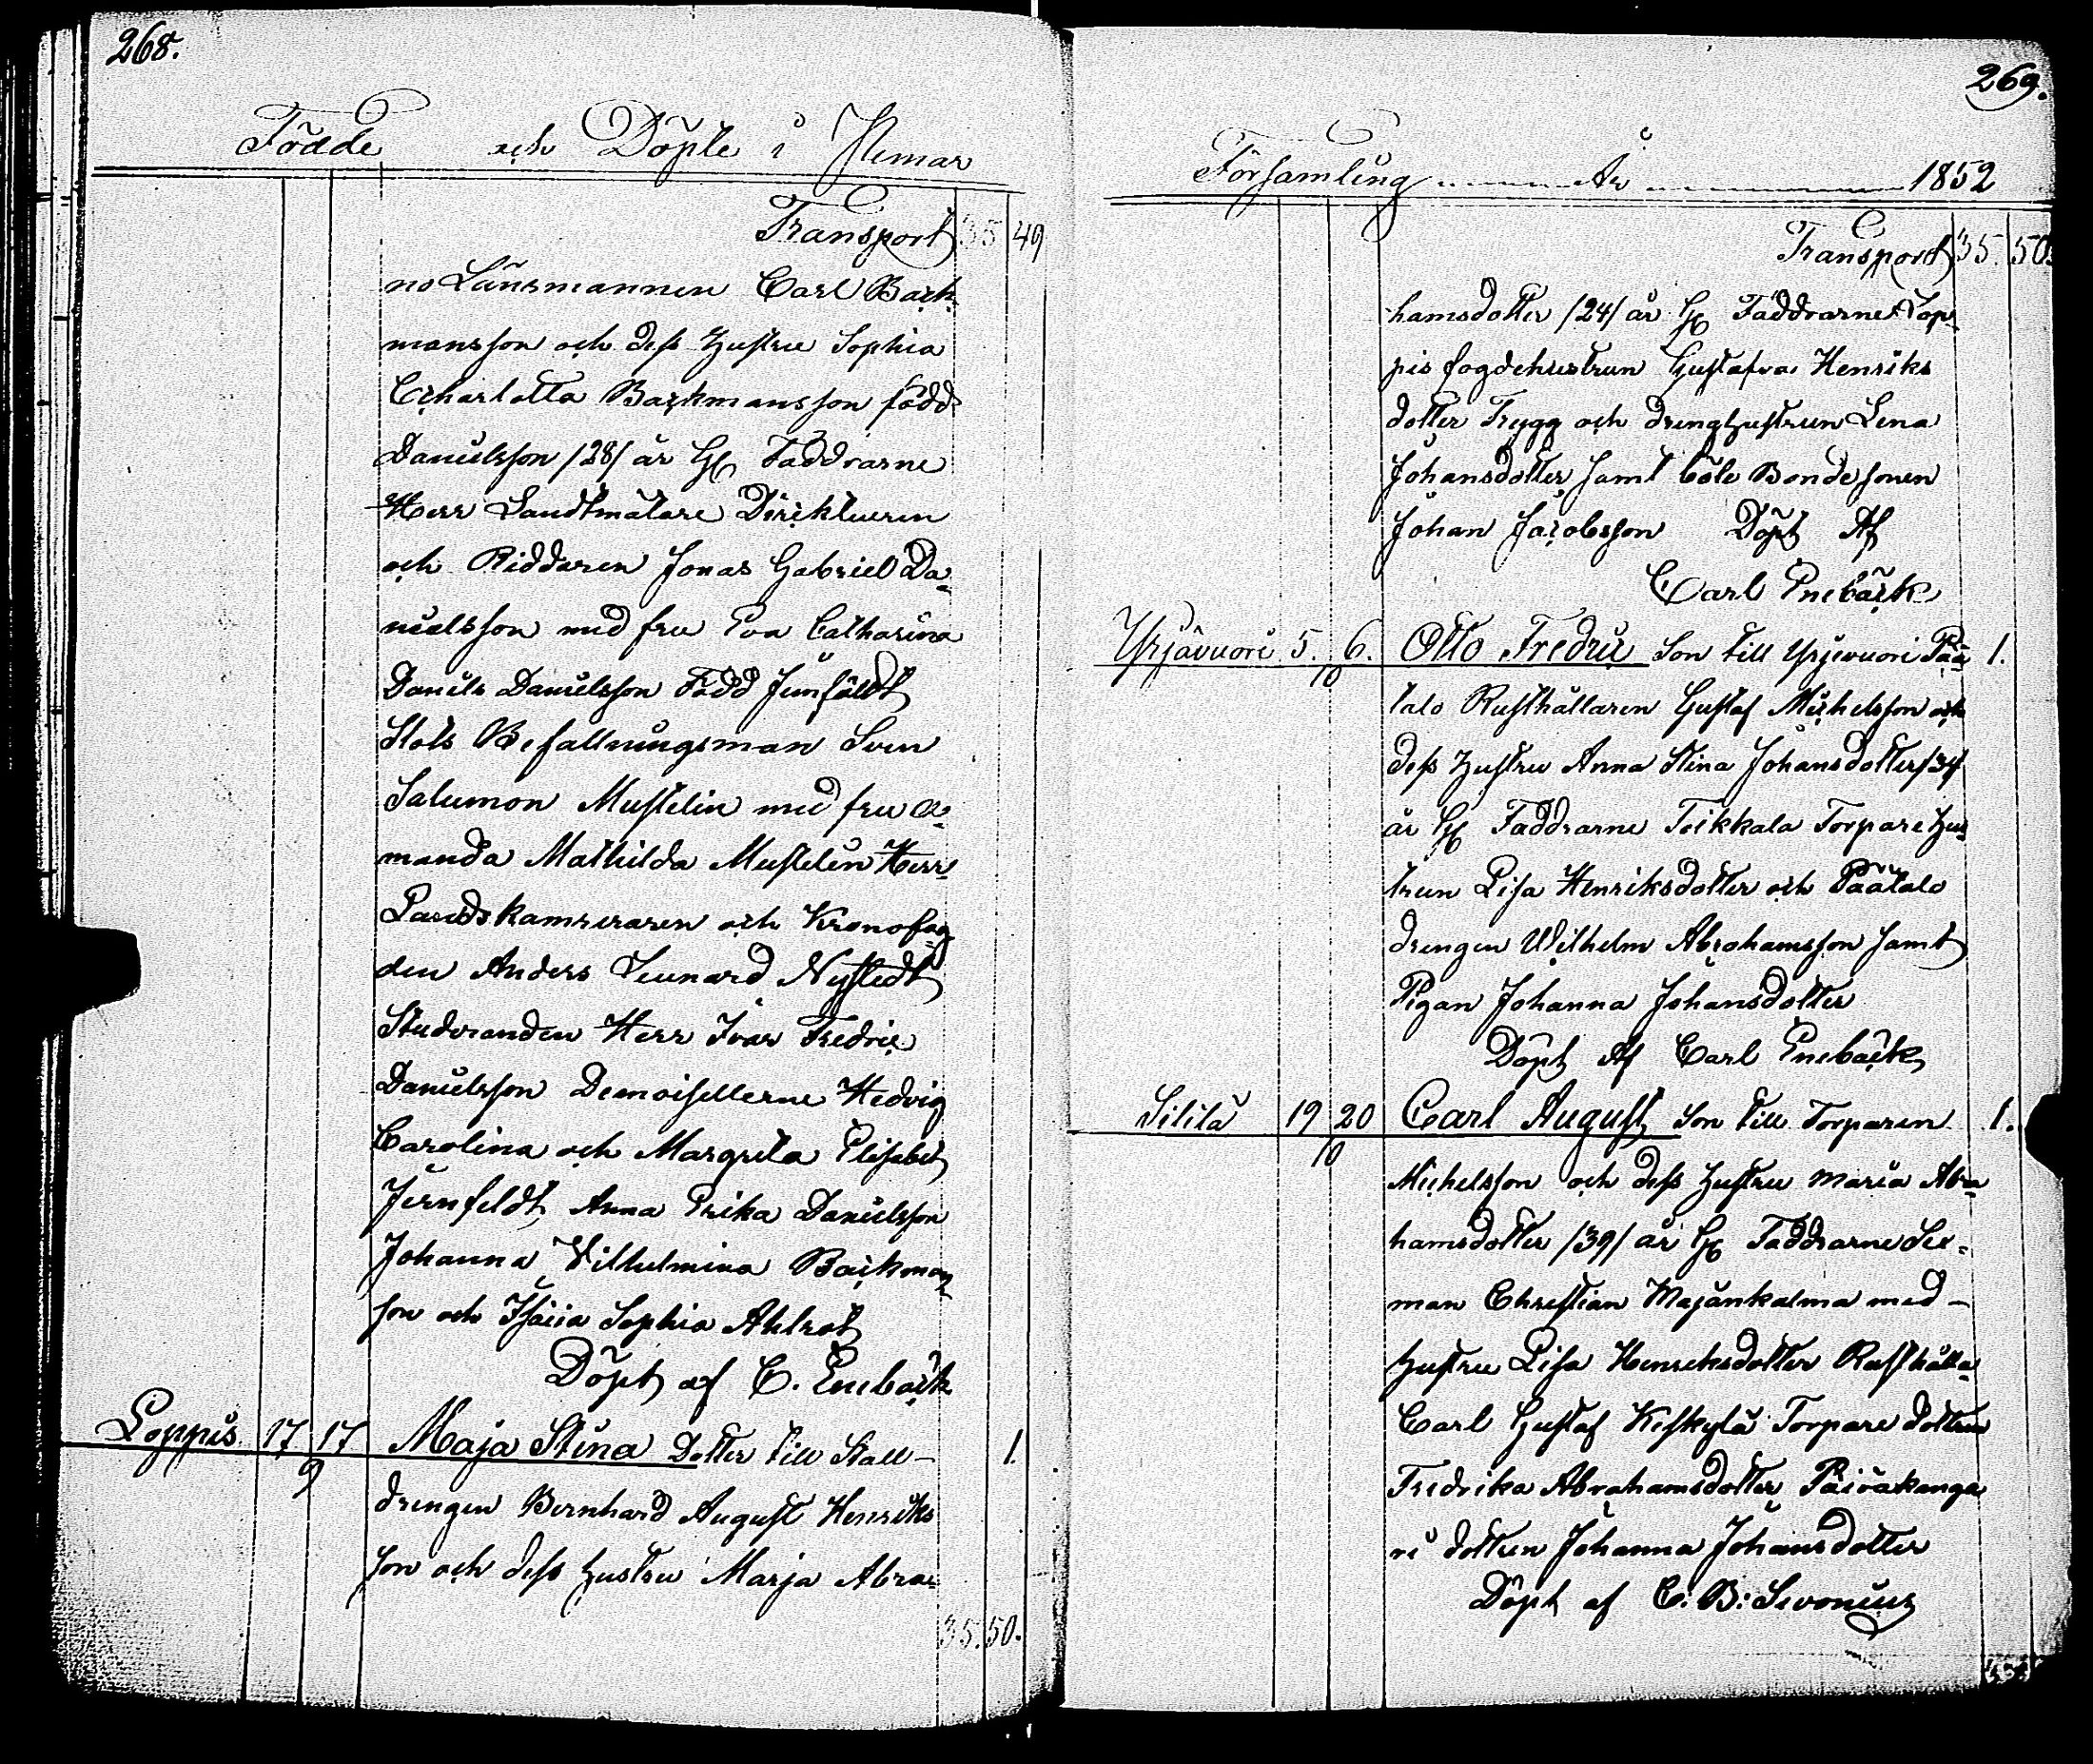 268.
Födde och Döpte i Nemar
Transport 35 49
no Länsmannen Carl Back-
mansson och dess Hustru Sophia
Charlotta Backmansson född
Danielsson /28/ år Faddrarne
Herr Landtmätare Direkteuren
och Riddaren Jonas Gabriel Da-
nielsson med fru Eva Catharina
Daniels Danielsson Född
Slots Befallningsman Sven
Salumon Mustelin med fru A-
manda Mathilda Mustelin Herr
Landskamreraren och Kronofog-
den Anders Lennard Nystedt
Studeranden Herr Ivar Fredric
Danielsson Demoisellerne Hedvig
Carolina och Margreta Elisabet
Jernfeldt, Anna Erika Danielsson
Johanna Vilhelmina Backman-
son och Sophia Ahlrot
Döpt af C. Enebäck
Loppis 17 17 Maja Stina Dotter till Stall- 1.
9
drengen Bernhard August Henriks
son och dess hustru Marja Abra-
35. 50.
269.
Församling År 1852
Transport 35. 50.
hamsdotter /24/ år Faddrarne Lop-
pis fogdehustrun Gustafva Henriks
dotter Trygg och drenghustrun Lena
Johansdotter samt böle Bondesonen
Johan Jacobsson Döpt Af
Carl Enebäck
Yrjävuori 5. 6. Otto Fredric Son till Yrjevuori Pää- 1.
10
talo Rusthållaren Gustaf Michelsson och
dess Hustru Anna Stina Johansdotter /34/
år Faddrarne Teikkala Torpare Hus-
trun Lisa Henriksdotter och Päätalo
drengen Wilhelm Abrahamsson samt
Pigan Johanna Johansdotter
Döpt Af Carl Enebäck
Sililä 19 20 Carl August Son till Torparen 1.
10
Michelsson och dess Hustru Maria Abra-
hamsdotter /39/ år Faddrarne Sex-
man Christian Majankalma med
Hustru Lisa Henriksdotter Rusthålla-
Carl Gustaf Keskylä Torpare dottren
Fredrika Abrahamsdotter Päiväkanga
ri dottren Johanna Johansdotter
Döpt af C: B: Sevonius